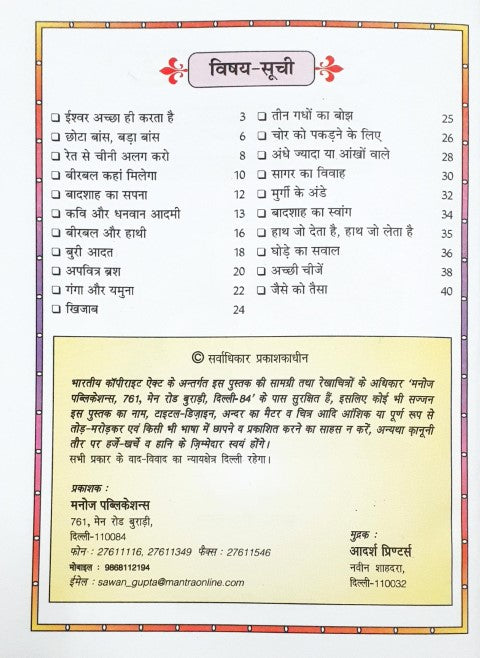 विषय-सूची
❑ ईश्वर अच्छा ही करता है 3
❑ छोटा बांस, बड़ा बांस 6
❑ रेत से चीनी अलग करो 8
❑ बीरबल कहां मिलेगा 10
❑ बादशाह का सपना 12
❑ कवि और धनवान आदमी 13
❑ बीरबल और हाथी 16
❑ बुरी आदत 18
❑ अपवित्र ब्रश 20
❑ गंगा और यमुना 22
❑ खिजाब 24
❑ तीन गधों का बोझ 25
❑ चोर को पकड़ने के लिए 26
❑ अंधे ज्यादा या आंखों वाले 28
❑ सागर का विवाह 30
❑ मुर्गी के अंडे 32
❑ बादशाह का स्वांग 34
❑ हाथ जो देता है, हाथ जो लेता है 35
❑ घोड़े का सवाल 36
❑ अच्छी चीजें 38
❑ जैसे को तैसा 40
© सर्वाधिकार प्रकाशकाधीन
भारतीय कॉपीराइट ऐक्ट के अन्तर्गत इस पुस्तक की सामग्री तथा रेखाचित्रों के अधिकार 'मनोज
पब्लिकेशन्स, 761, मेन रोड बुराड़ी, दिल्ली-84' के पास सुरक्षित हैं, इसलिए कोई भी सज्जन
इस पुस्तक का नाम, टाइटल-डिज़ाइन, अन्दर का मैटर व चित्र आदि आंशिक या पूर्ण रूप से
तोड़-मरोड़कर एवं किसी भी भाषा में छापने व प्रकाशित करने का साहस न करें, अन्यथा क़ानूनी
तौर पर हर्जे-खर्चे व हानि के ज़िम्मेदार स्वयं होंगे।
सभी प्रकार के वाद-विवाद का न्यायक्षेत्र दिल्ली रहेगा।
प्रकाशक :
मनोज पब्लिकेशन्स
761, मेन रोड बुराड़ी,
दिल्ली-110084
फोन : 27611116, 27611349 फैक्स : 27611546
मोबाइल : 9868112194
ईमेल : sawan_gupta@mantraonline.com
मुद्रक :
आदर्श प्रिण्टर्स
नवीन शाहदरा,
दिल्ली-110032